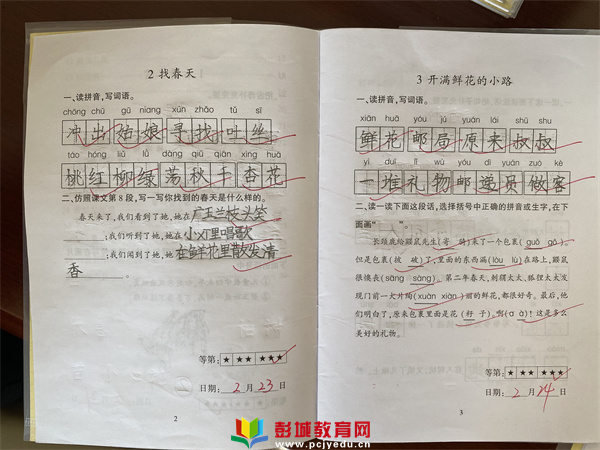 2 找春天
一、读拼音,写词语。
chōng chū gū niang xún zhǎo tǔ sī
冲出 姑娘 寻找 吐丝
táo hóng liǔ lǜ dàng qiū qiān xìng huā
桃红柳绿 荡秋千 杏花
二、仿照课文第 8 段,写一写你找到的春天是什么样的。
春天来了,我们看到了她,她在广玉兰枝头笑
;我们听到了她,她在小河里唱歌
;我们闻到了她,她在鲜花里散发清
香。
等第: ★★★ ★★★
日期: 2 月 23 日
2
3 开满鲜花的小路
一、读拼音,写词语。
xiān huā yóu jú yuán lái shū shu
鲜花 邮局 原来 叔叔
yì duī lǐ wù yóu dì yuán zuò kè
一堆礼物 邮递员 做客
二、读一读下面这段话,选择括号中正确的拼音或生字,在下
面画“ ”。
长颈鹿给鼹鼠先生(寄 骑)来了一个包裹(guǒ gǒ),
但是包裹(披 破)了,里面的东西漏(lòu lù)在路上,鼹鼠
很懊丧(sāng sàng)。第二年春天,刺猬太太、狐狸太太发
现门前一大片绚(xuàn xiàn)丽的鲜花,都很好奇。最后,他
们明白了,原来包裹里面是花(籽 子),啊(ɑ à)!这是多么
美好的礼物。
等第: ★★★ ★★★
日期: 2 月 24 日
3
彭城教育网
www.pcjyedu.cn